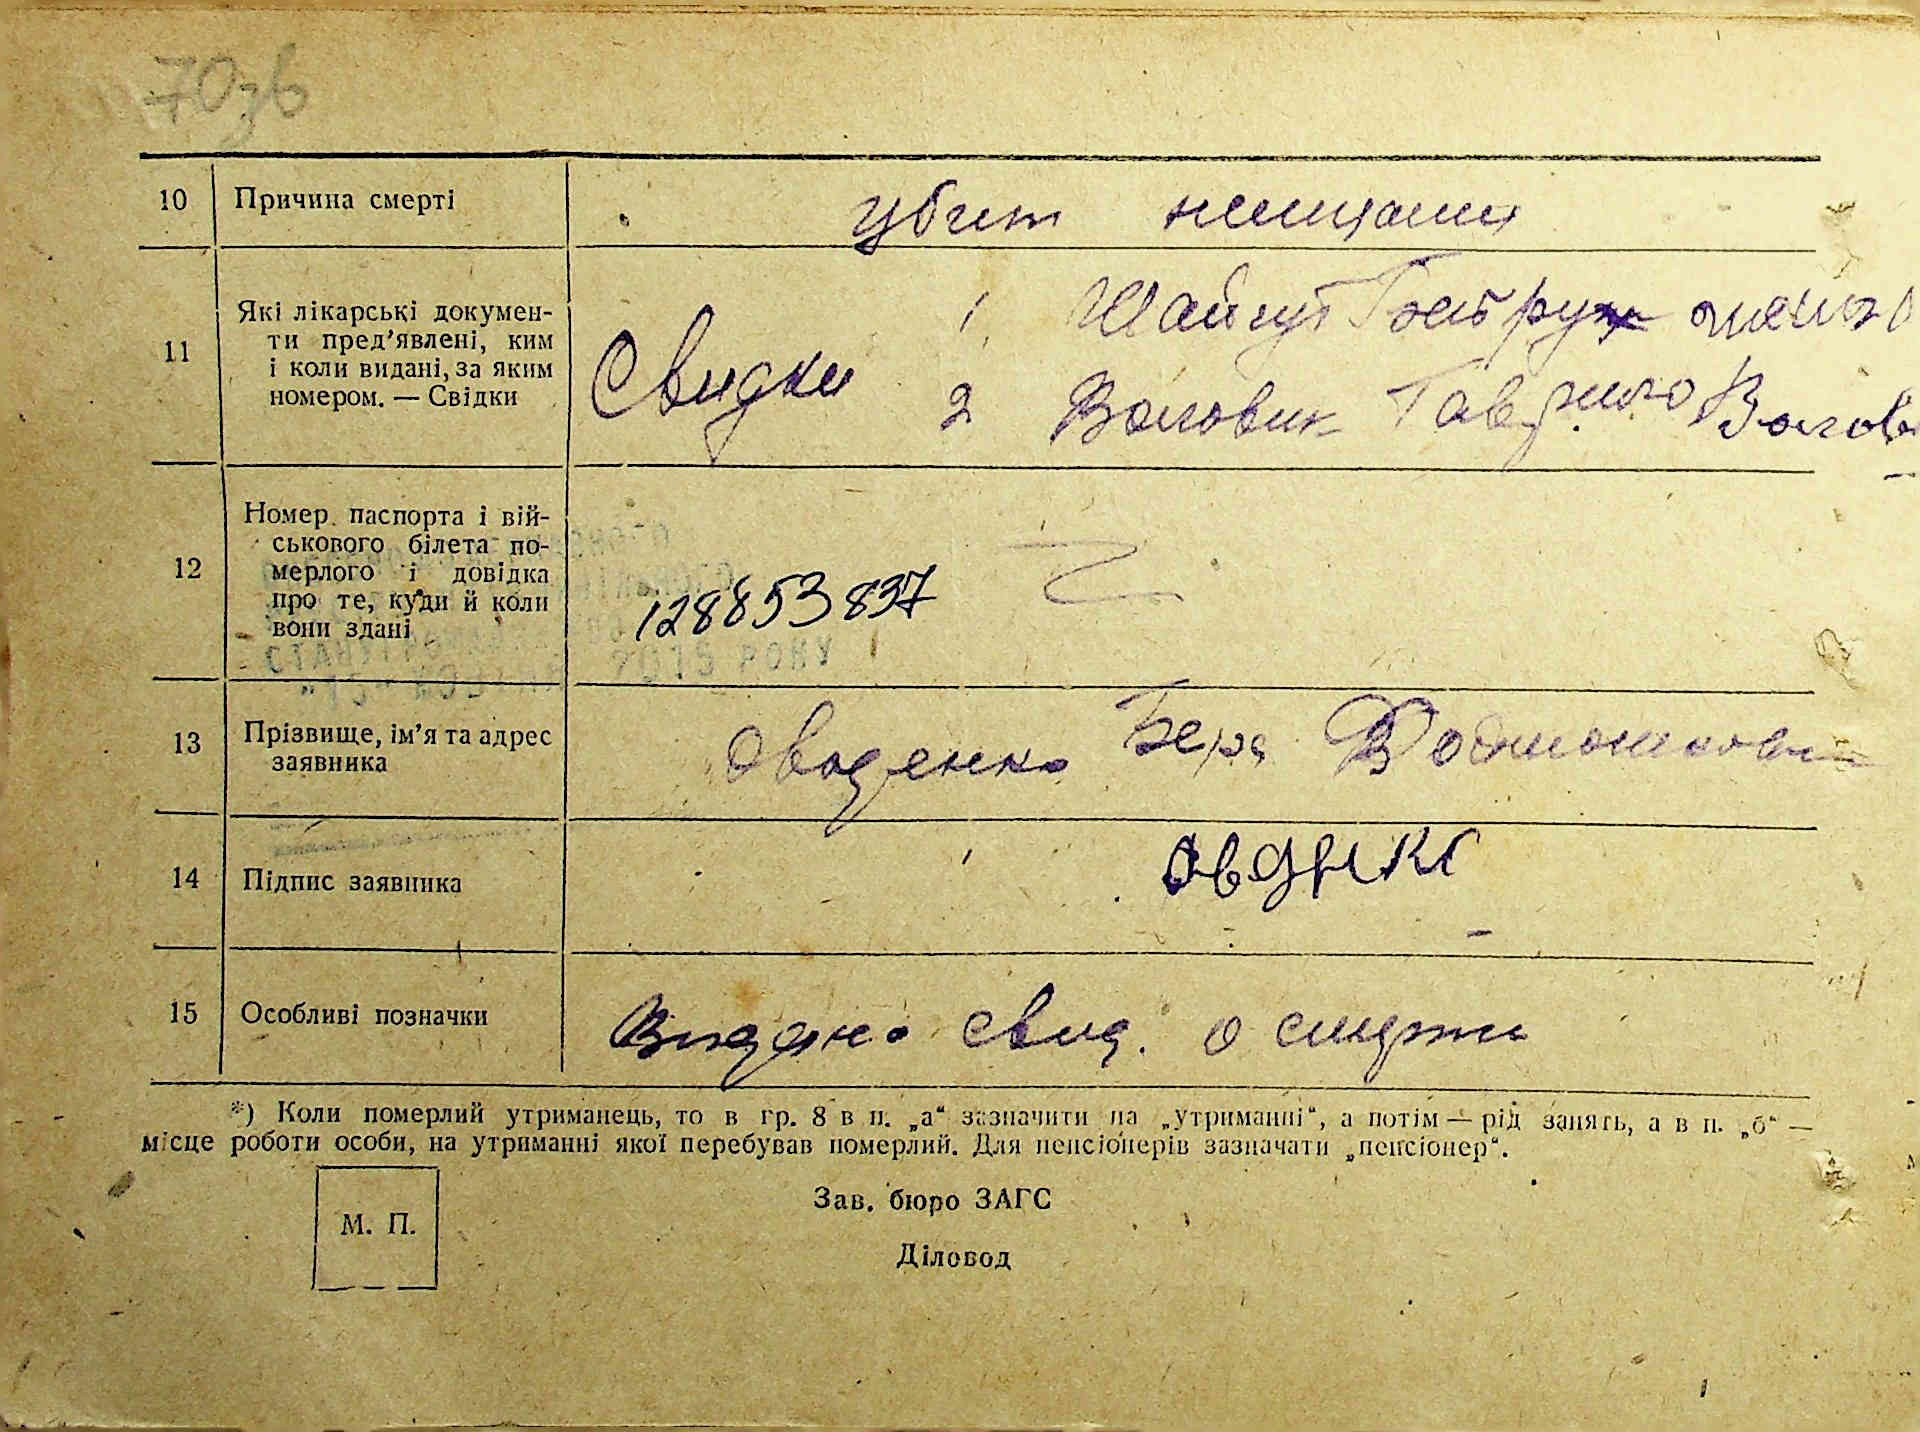 10 Причина смерті убит немцами
11 Які лікарські докумен-
ти пред'явлені, ким
і коли видані, за яким
номером. — Свідки
Свидки 1
2 Воловик Гаврило
12 Номер паспорта і вій-
ськового білета по-
мерлого і довідка
про те, куди й коли
вони здані
128853837
2015 РОКУ
13 Прізвище, ім'я та адрес
заявника
Овденко Вера
14 Підпис заявника
15 Особливі позначки Видано свид. о смерти
*) Коли померлий утриманець, то в гр. 8 в п. „а“ зазначити на „утриманні“, а потім — рід занять, а в п. „б“ —
місце роботи особи, на утриманні якої перебував померлий. Для пенсіонерів зазначати „пенсіонер“.
М. П.
Зав. бюро ЗАГС
Діловод